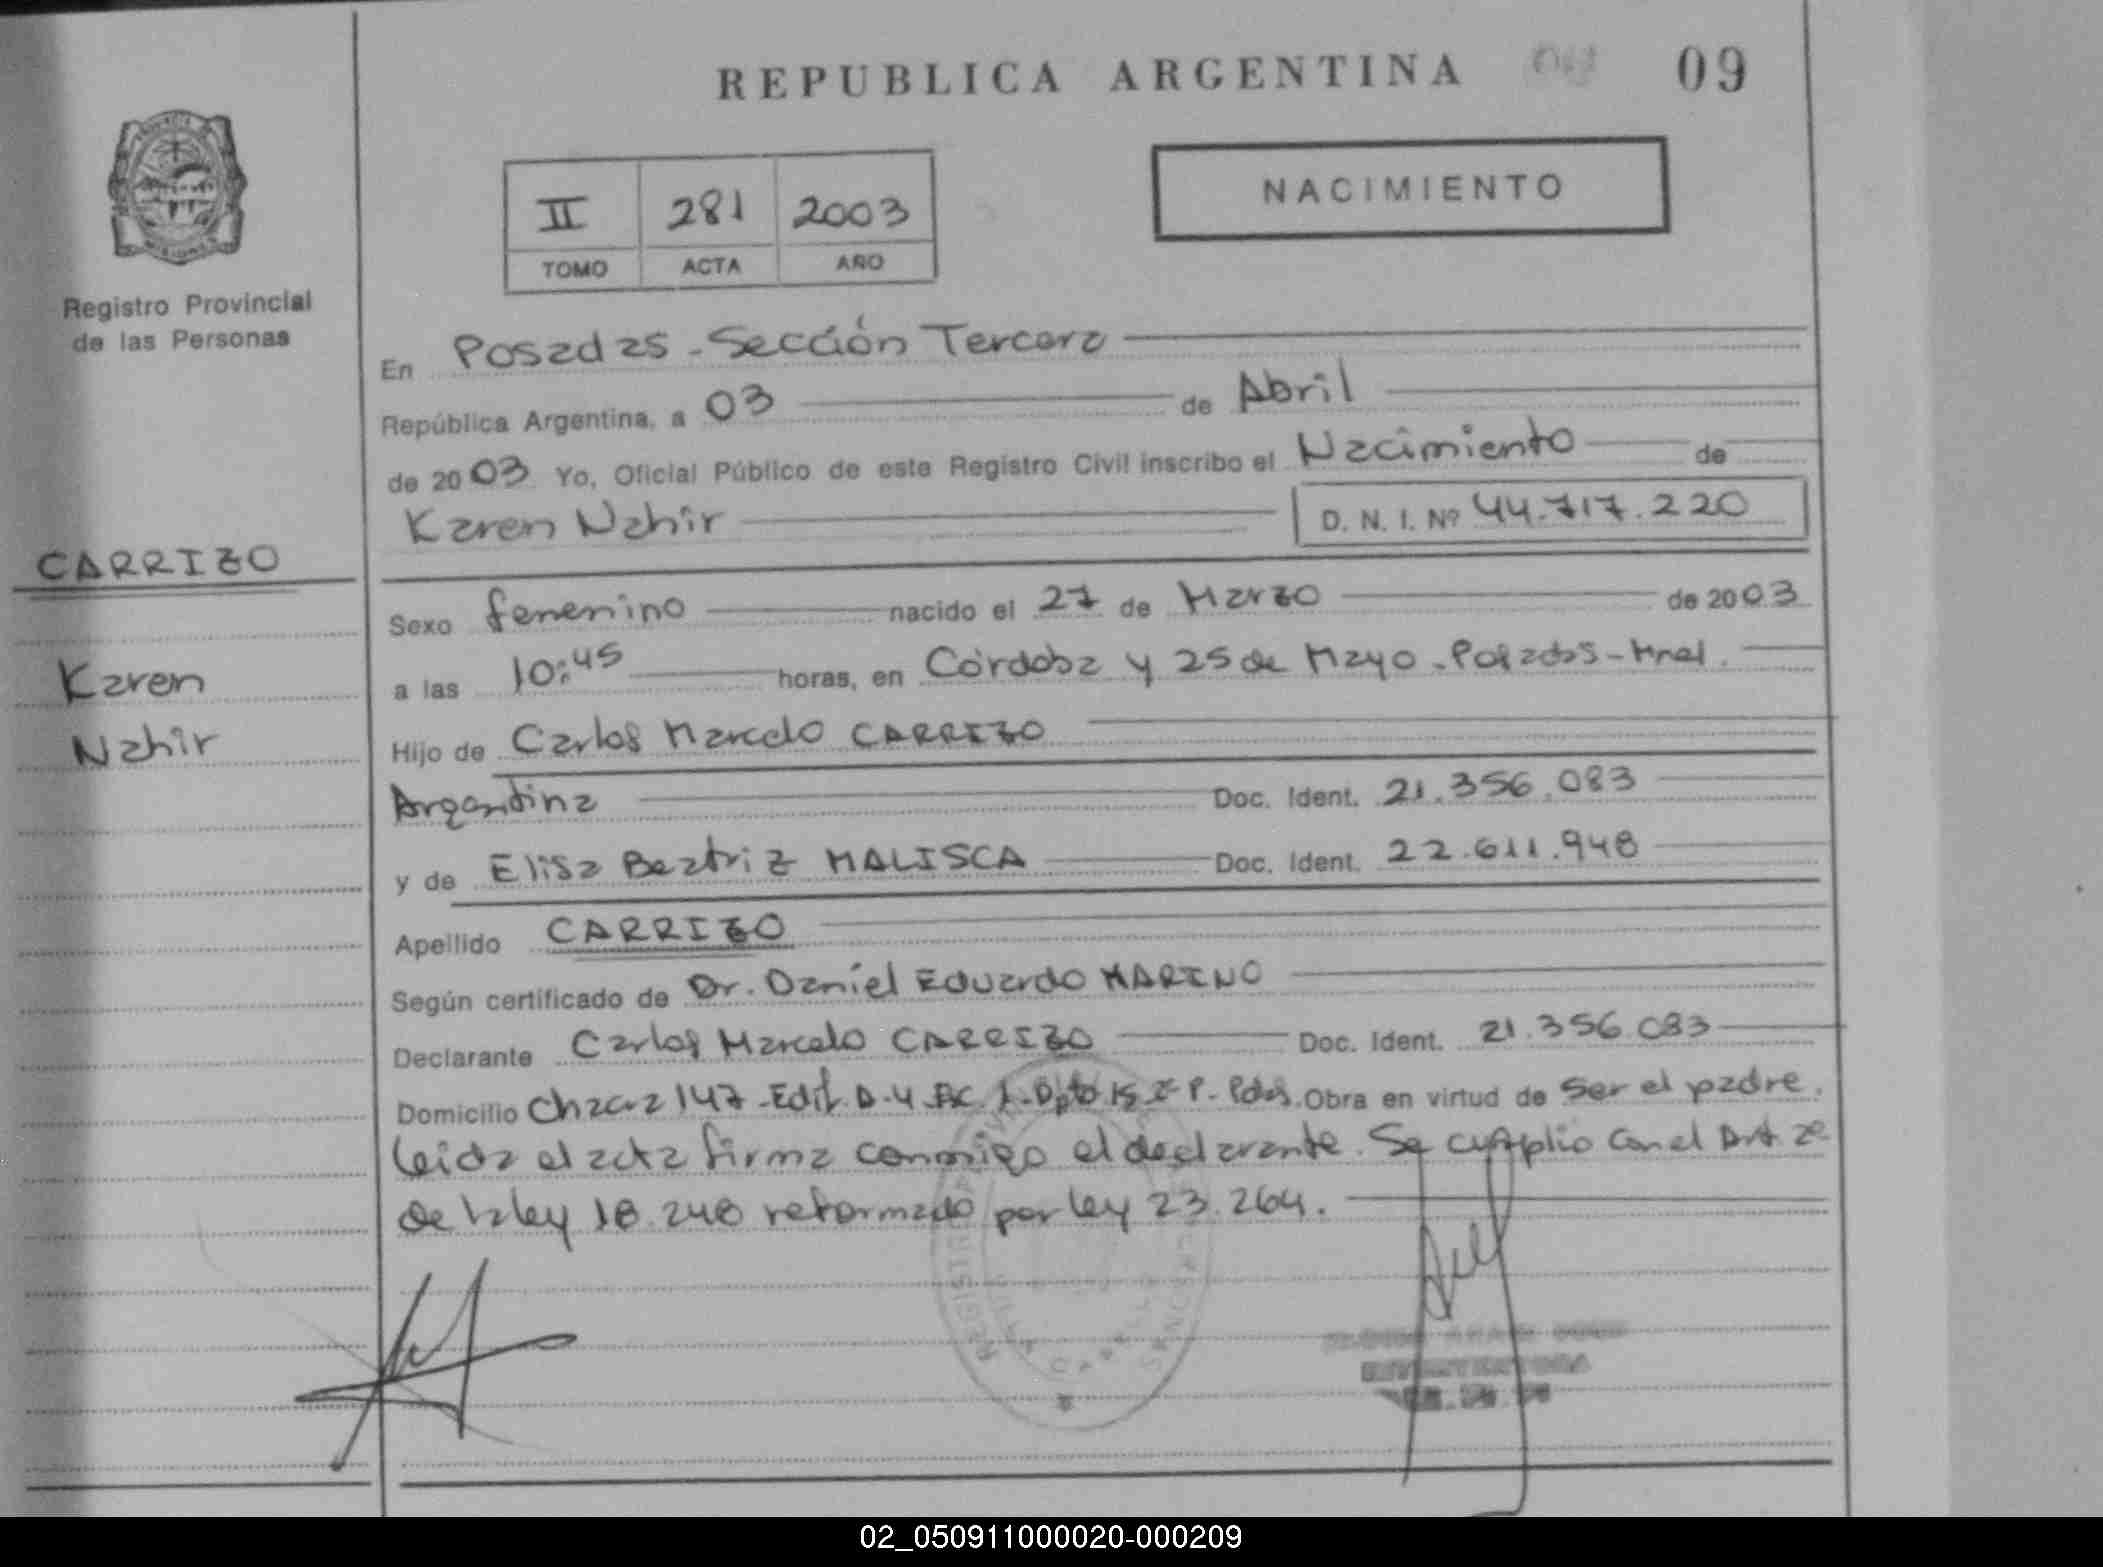 REPUBLICA ARGENTINA 09
NACIMIENTO
II 281 2003
TOMO ACTA AÑO
Registro Provincial
de las Personas
En Posadas - Sección Tercera
República Argentina, a 03 de Abril
de 2003 Yo, Oficial Público de este Registro Civil inscribo el Nacimiento de
Karen Nahir D. N. I. Nº 44.717.220
CARRIZO
Karen
Nahir
Sexo femenino nacido el 27 de Marzo de 2003
a las 10:45 horas, en Córdoba y 25 de Mayo - Posadas - Mnes.
Hijo de Carlos Marcelo CARRIZO
Argentina Doc. Ident. 21.356.083
y de Elisa Beatriz MALISCA Doc. Ident. 22.611.948
Apellido CARRIZO
Según certificado de Dr. Daniel Eduardo MARINO
Declarante Carlos Marcelo CARRIZO Doc. Ident. 21.356.083
Domicilio Chacra 147 - Edif. D-4 Dpto P. Pdas. Obra en virtud de ser el padre.
Leida el acta firma conmigo el declarante. Se cumplio con el Art. 2º
de la ley 18.248 reformado por ley 23.264.
02_050911000020-000209